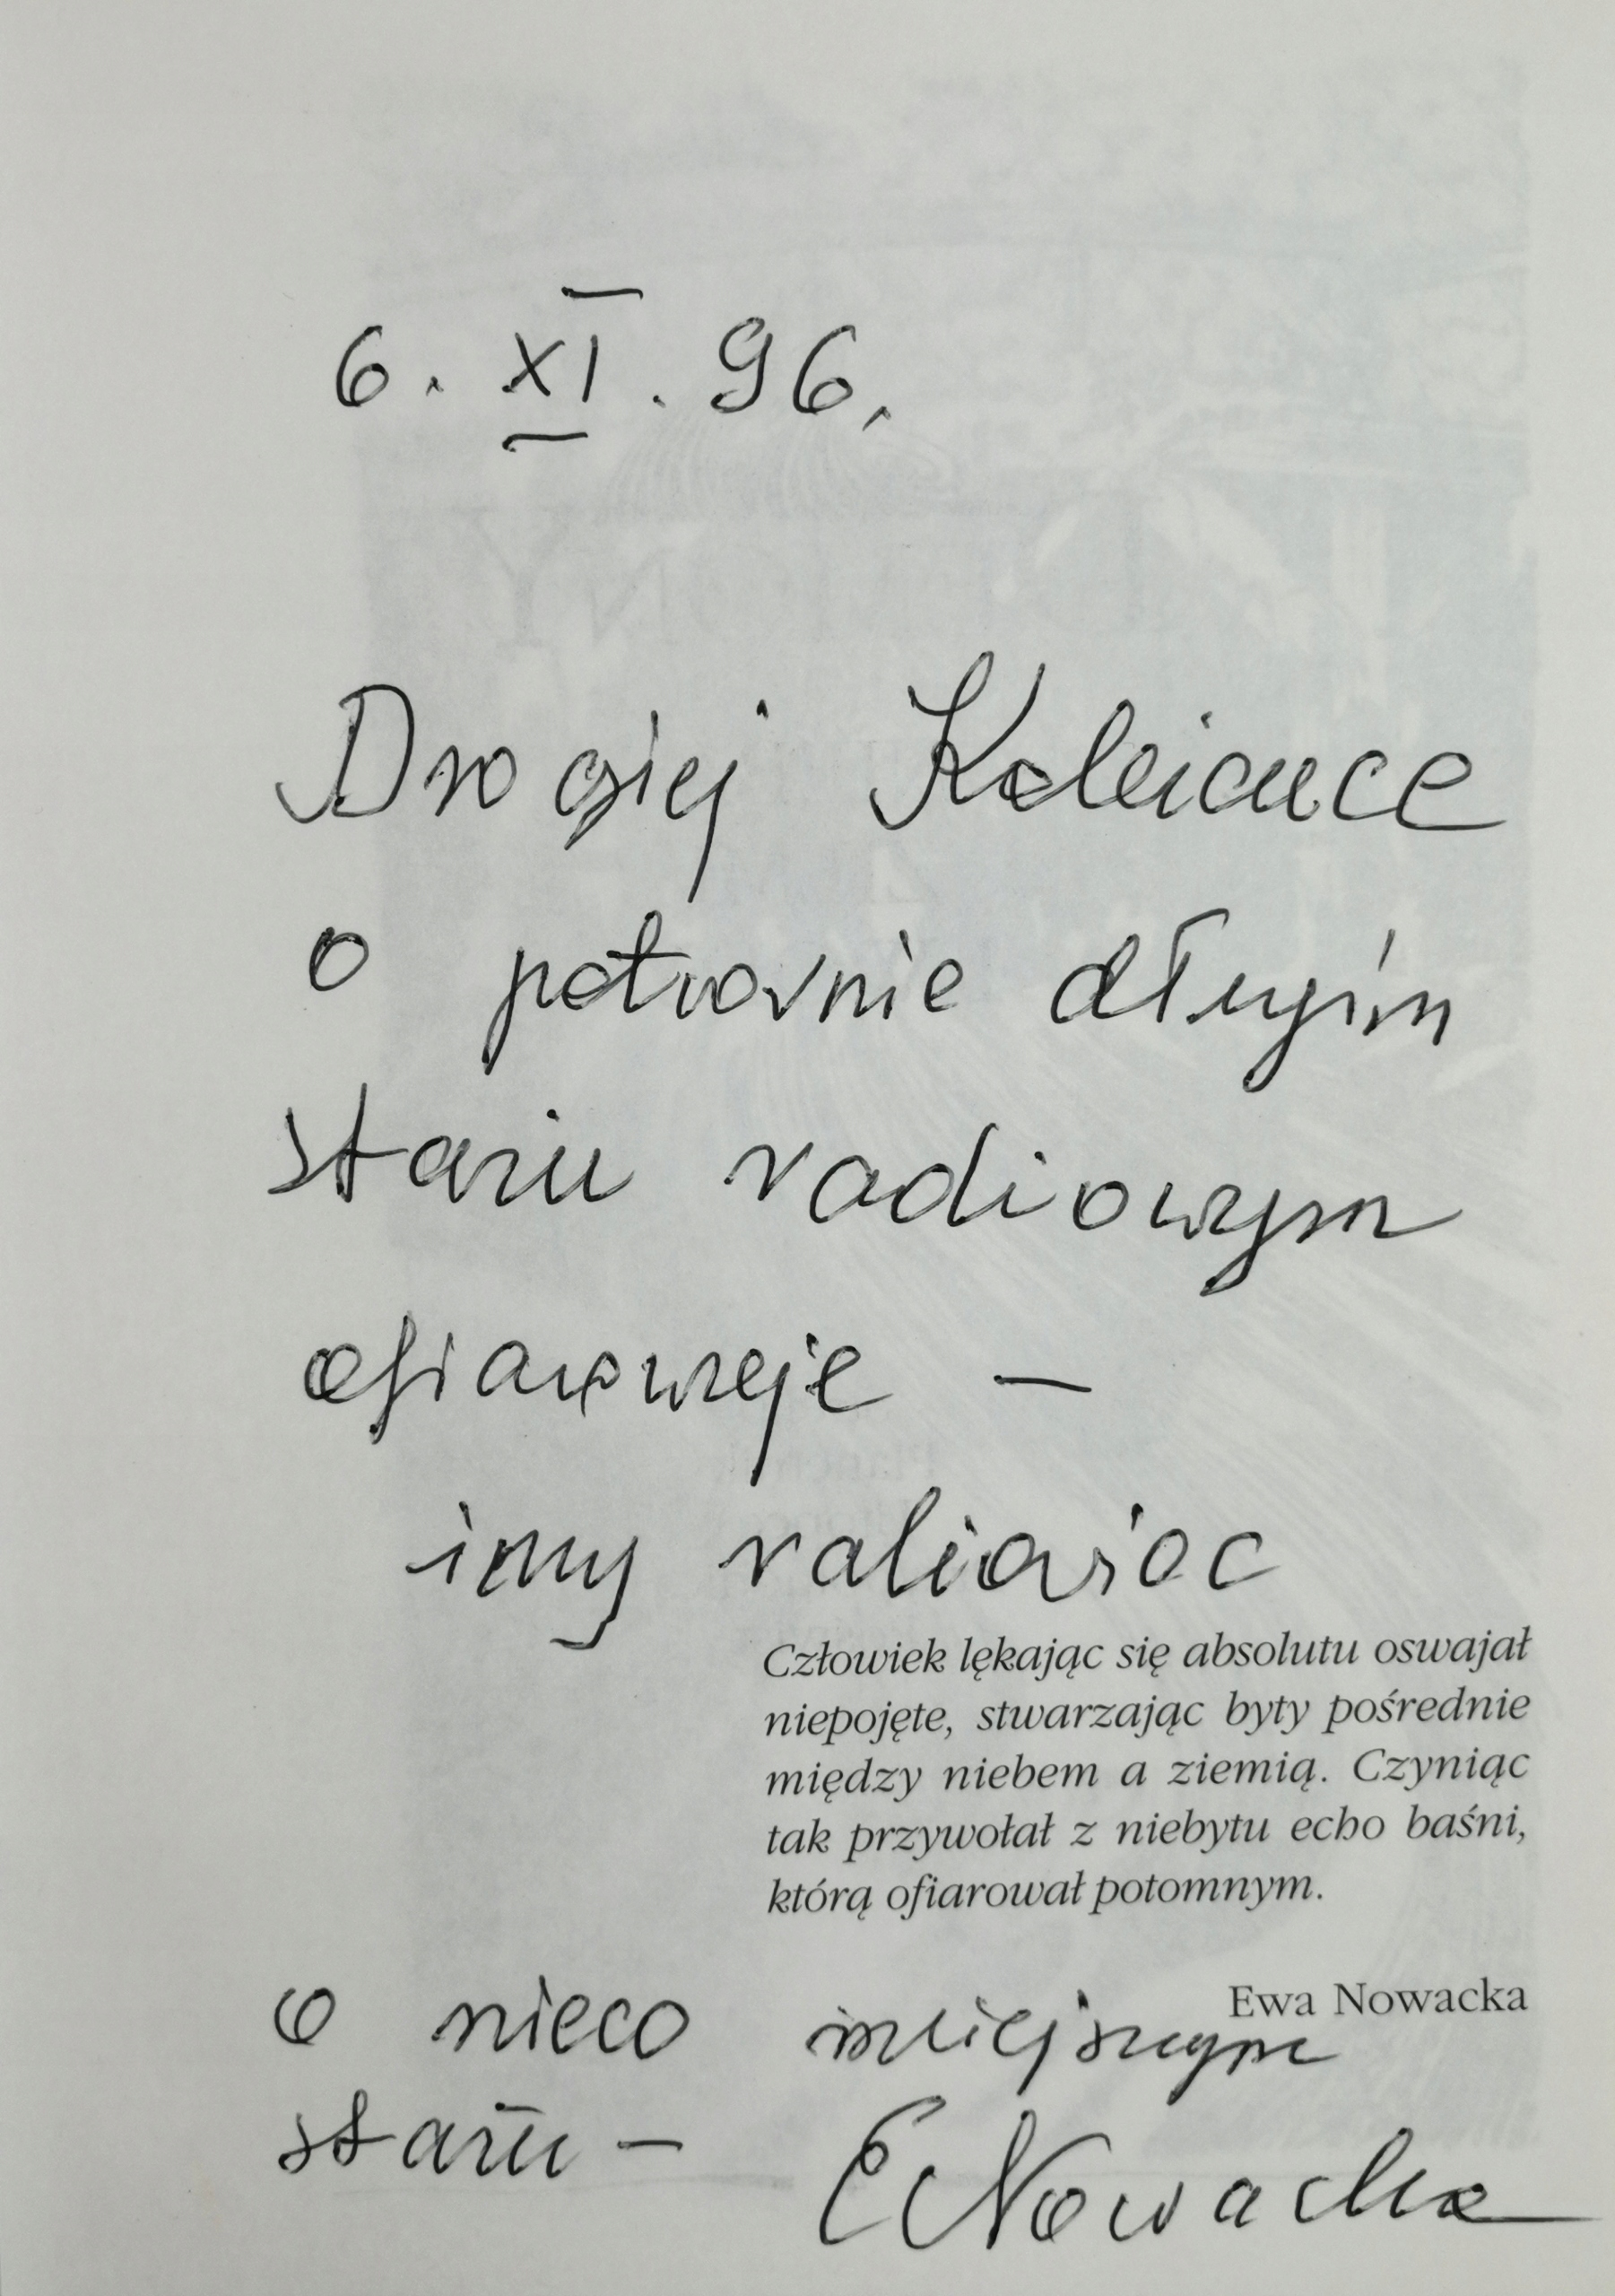 6. XI. 96.
Drogiej Koleżance
o potwornie długim
stażu radiowym
ofiarowuje —
inny
Człowiek lękając się absolutu oswajał
niepojęte, stwarzając byty pośrednie
między niebem a ziemią. Czyniąc
tak przywołał z niebytu echo baśni,
którą ofiarował potomnym.
Ewa Nowacka
o nieco mniejszym
stażu — ENowacka